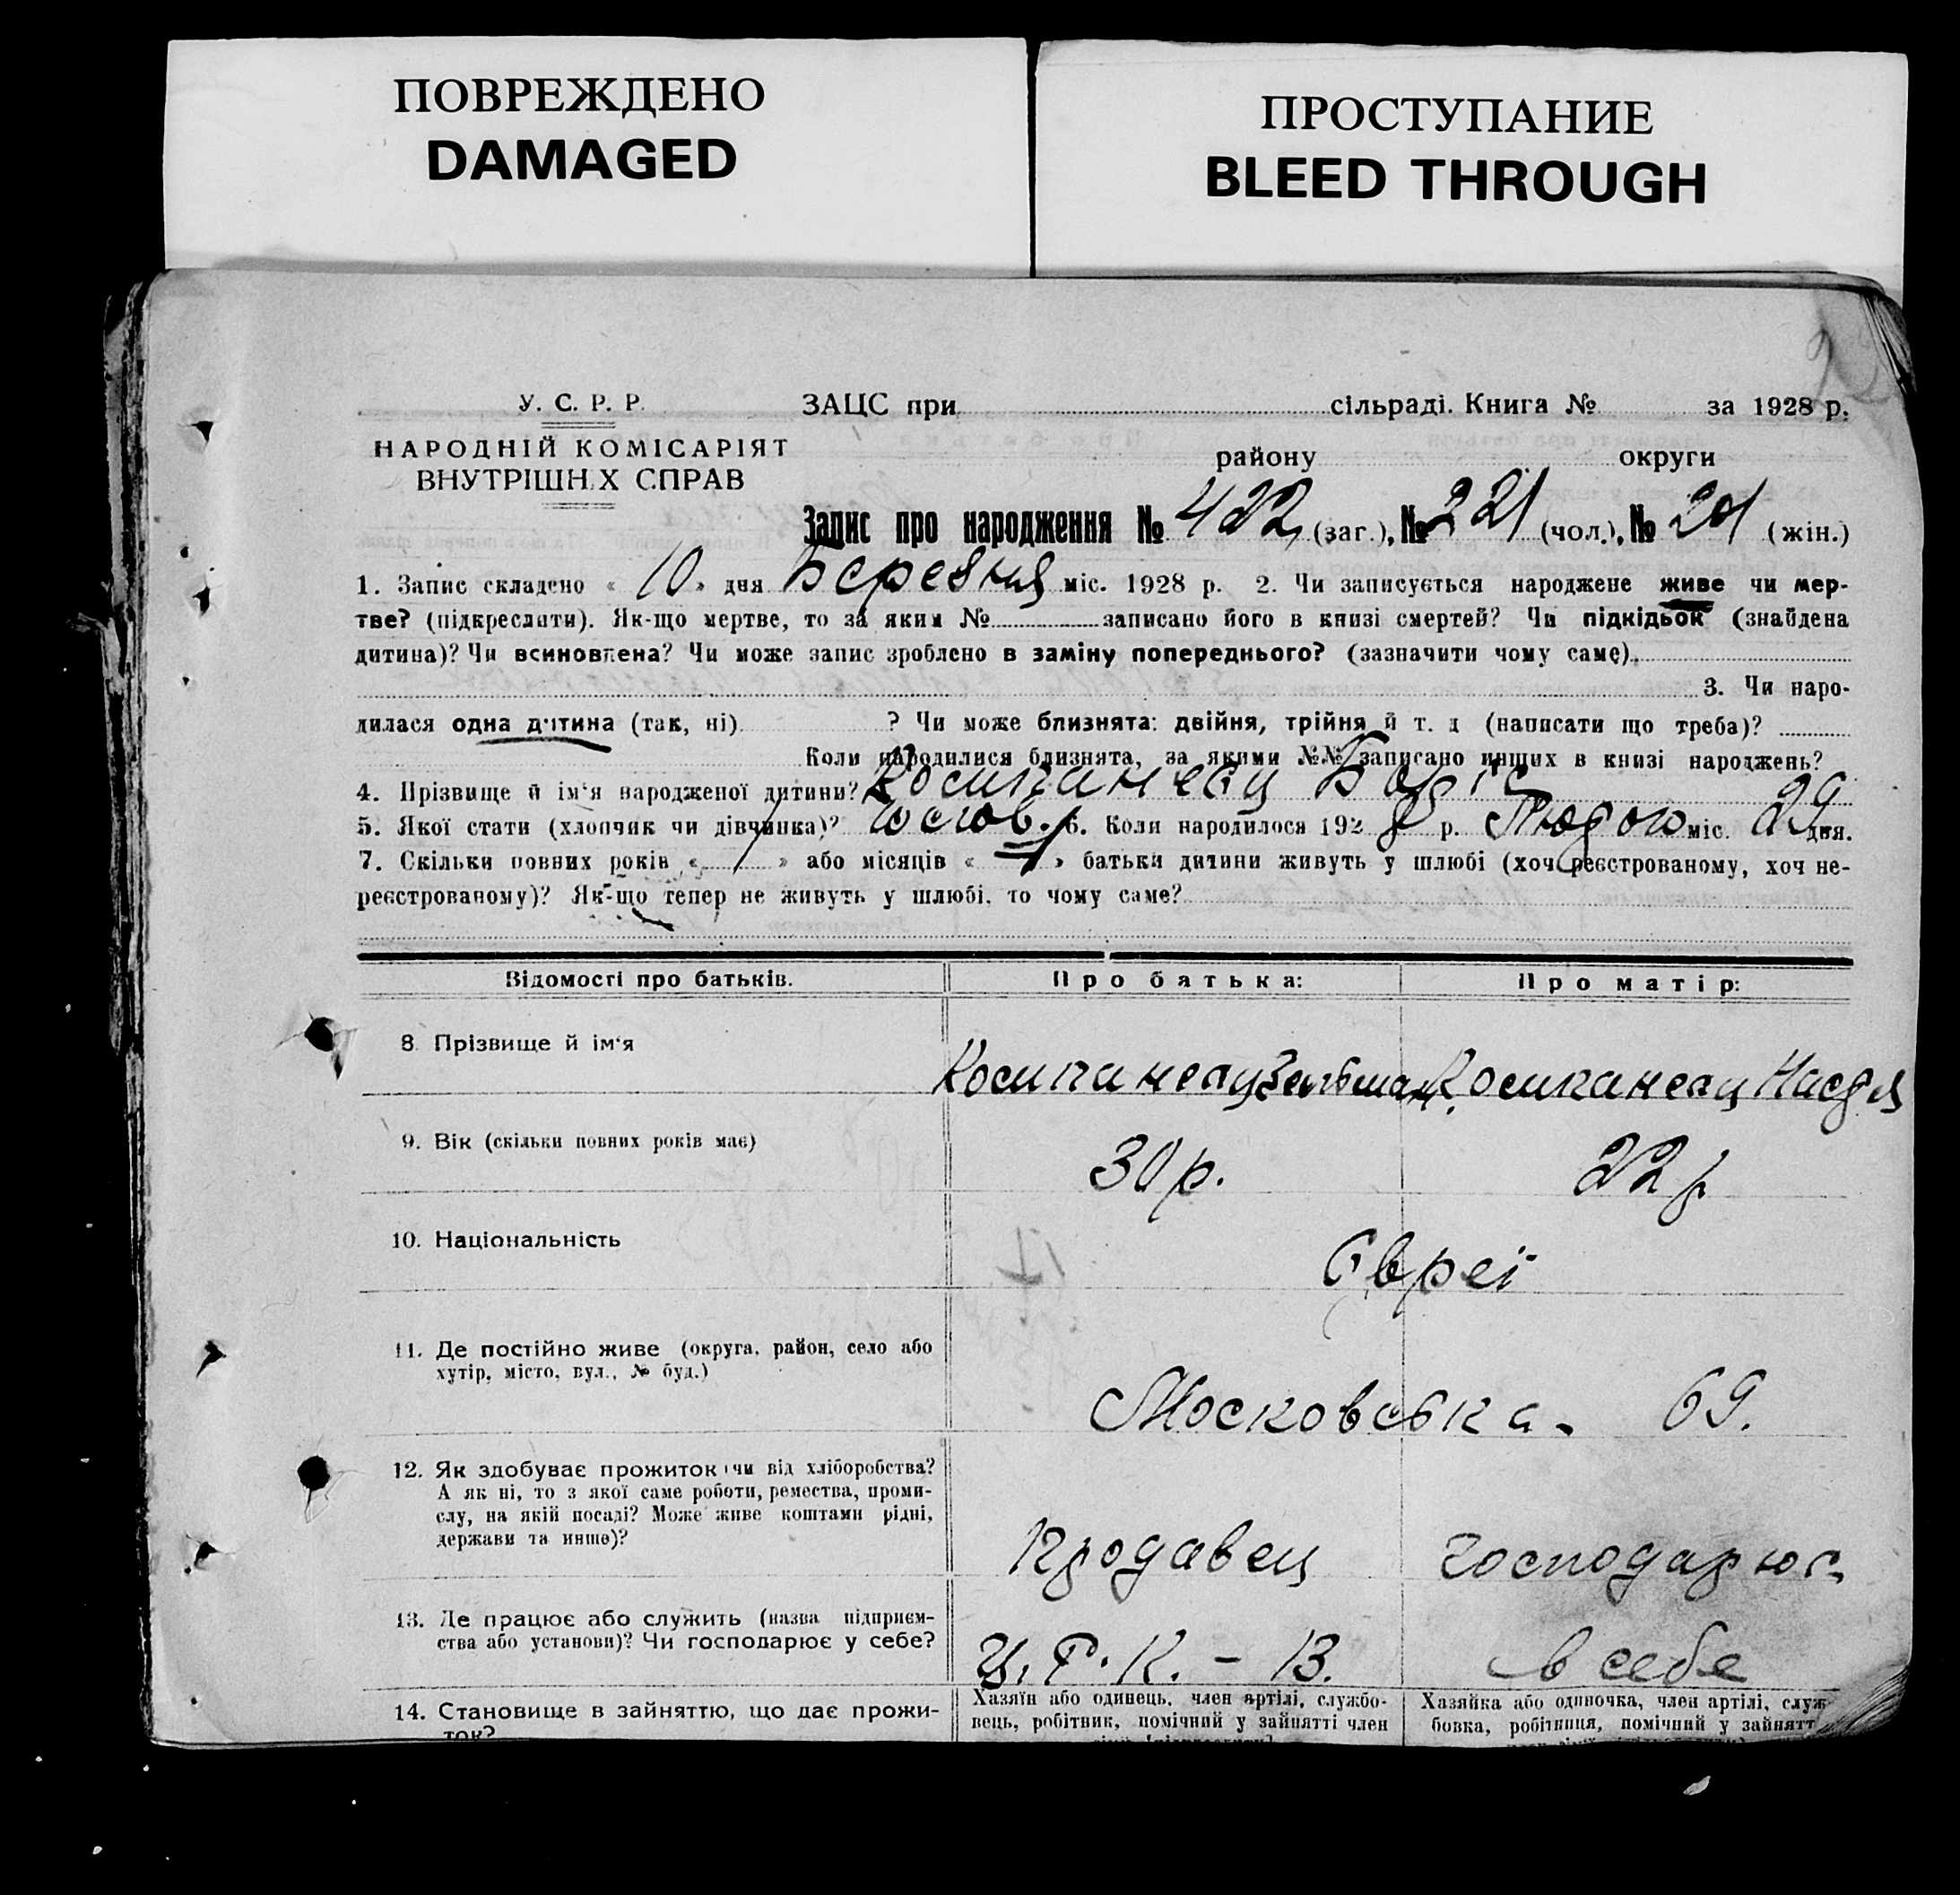 ПОВРЕЖДЕНО
DAMAGED
ПРОСТУПАНИЕ
BLEED THROUGH
У. С. Р. Р.
НАРОДНІЙ КОМІСАРІЯТ
ВНУТРІШН Х СПРАВ
ЗАЦС при сільраді. Книга № за 1928 р.
району округи
Запис про народження № 422 (заг.), № 221 (чол.), № 201 (жін.)
1. Запис складено « 10 » дня Березня міс. 1928 р. 2. Чи записується народжене живе чи мер-
тве? (підкреслити). Як-що мертве, то за яким № записано його в книзі смертей? Чи підкідьок (знайдена
дитина)? Чи всиновлена? Чи може запис зроблено в заміну попереднього? (зазначити чому саме).
3. Чи наро-
дилася одна дитина (так, ні) ? Чи може близнята: двійня, трійня й т. д (написати що треба)?
Коли народилися близнята, за якими №№ записано инших в книзі народжень?
4. Прізвище й ім'я народженої дитини? Боріс
5. Якої стати (хлопчик чи дівчинка)? 6. Коли народилося 1928 р. Лютого міс. 29 дня.
7. Скільки повних років « 1 » або місяців « » батьки дитини живуть у шлюбі (хоч реєстрованому, хоч не-
реєстрованому)? Як-що тепер не живуть у шлюбі, то чому саме?
Відомості про батьків.
Про батька:
Про матір:
8. Прізвище й ім'я
9. Вік (скільки повних років має)
30 р.
22 р
10. Національність
Євреї
11. Де постійно живе (округа, район, село або
хутір, місто, вул., № буд.)
Московська - 69.
12. Як здобуває прожиток (чи від хліборобства?
А як ні, то з якої саме роботи, ремества, проми-
слу, на якій посаді? Може живе коштами рідні,
держави та инше)?
Продавец
господарює
13. Де працює або служить (назва підприєм-
ства або установи)? Чи господарює у себе?
Ц. Р. К. - 13.
в себе
14. Становище в зайняттю, що дає прожи-
ток?
Хазяїн або одинець, член артілі, службо-
вець, робітник, помічний у зайнятті член
Хазяйка або одиночка, член артілі, служ-
бовка, робітниця, помічний у зайнятт